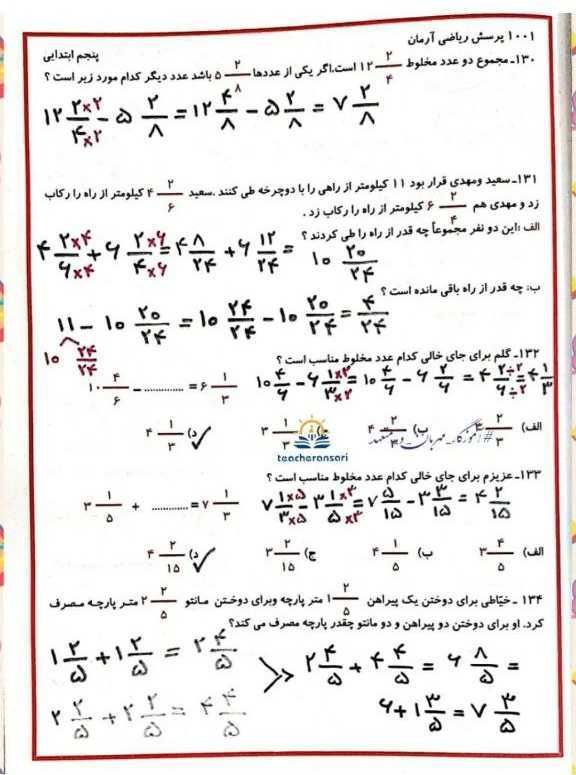 ۱۰۰۱ پرسش ریاضی آرمان
پنجم ابتدایی
۱۳۰ـ مجموع دو عدد مخلوط ۱۲ ۲/۴ است.اگر یکی از عددها ۵ ۲/۸ باشد عدد دیگر کدام مورد زیر است ؟
۱۲ ۲×۲/۴×۲ - ۵ ۲/۸ = ۱۲ ۴/۸ - ۵ ۲/۸ = ۷ ۲/۸
۱۳۱ـ سعید ومهدی قرار بود ۱۱ کیلومتر از راهی را با دوچرخه طی کنند .سعید ۴ ۲/۶ کیلومتر از راه را رکاب
زد و مهدی هم ۶ ۲/۴ کیلومتر از راه را رکاب زد .
الف :این دو نفر مجموعاً چه قدر از راه را طی کردند ؟
۴ ۲×۴/۶×۴ + ۶ ۲×۶/۴×۶ = ۴ ۸/۲۴ + ۶ ۱۲/۲۴ = ۱۰ ۲۰/۲۴
ب: چه قدر از راه باقی مانده است ؟
۱۱ - ۱۰ ۲۰/۲۴ = ۱۰ ۲۴/۲۴ - ۱۰ ۲۰/۲۴ = ۴/۲۴
۱۰ ۲۴/۲۴
۱۳۲ـ گلم برای جای خالی کدام عدد مخلوط مناسب است ؟
۱۰ ۴/۶ - ............ = ۶ ۱/۳
۱۰ ۴/۶ - ۶ ۱×۲/۳×۲ = ۱۰ ۴/۶ - ۶ ۲/۶ = ۴ ۲÷۲/۶÷۲ = ۴ ۱/۳
الف) ۳ ۲/۳ ب) ۴ ۲/۳ ۳ ۱/۳ د) ۴ ۱/۳ ✓
#آموزگار_مهربان_و_هنرمند
teacheransari
۱۳۳ـ عزیزم برای جای خالی کدام عدد مخلوط مناسب است ؟
۳ ۱/۵ + ............ = ۷ ۱/۳
۷ ۱×۵/۳×۵ - ۳ ۱×۳/۵×۳ = ۷ ۵/۱۵ - ۳ ۳/۱۵ = ۴ ۲/۱۵
الف) ۳ ۴/۵ ب) ۴ ۱/۵ ج) ۳ ۲/۱۵ د) ۴ ۲/۱۵ ✓
۱۳۴ ـ خیّاطی برای دوختن یک پیراهن ۱ ۲/۵ متر پارچه وبرای دوختن مانتو ۲ ۲/۵ متر پارچه مصرف
کرد. او برای دوختن دو پیراهن و دو مانتو چقدر پارچه مصرف می کند؟
۱ ۲/۵ + ۱ ۲/۵ = ۲ ۴/۵
۲ ۲/۵ + ۲ ۲/۵ = ۴ ۴/۵
۲ ۴/۵ + ۴ ۴/۵ = ۶ ۸/۵ =
۶ + ۱ ۳/۵ = ۷ ۳/۵